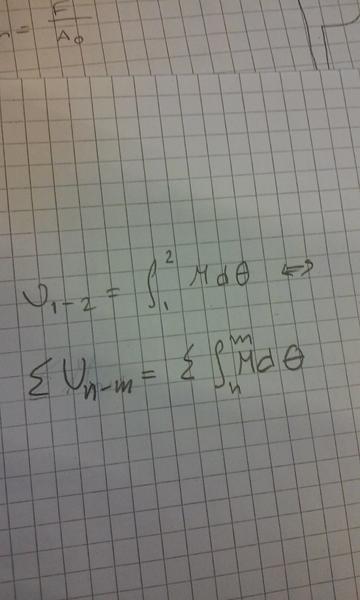 = F/A₀
U₁₋₂ = ∫₁² M d θ ⇔
Σ Uₙ₋ₘ = Σ ∫ₙᵐ M d θ